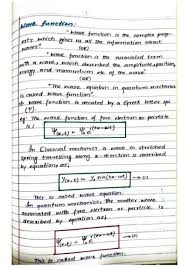 Wave function:
"Wave function is the complex property which gives us all the information about waves"
(OR)
"Wave function is the associated term with a wave, which described the amplitude, position, energy and momentum etc of the wave"
(OR)
"The wave equation in quantum mechanics is called wave function"
Wave function is denoted by a Greek letter psi
eg: The wave function of free electron or particle is;
Ψ(x,t) = Ψ₀ e^i(kx-ωt) → (i)
In Classical mechanics a wave in stretched spring travelling along x-direction is described by equations as;
Y(x,t) = y₀ sin(kx-ωt) → (ii)
This is called wave equation.
In quantum mechanics, the matter wave associated with free electron or particle is described by equation as;
Ψ(x,t) = Ψ₀ e^i(kx-ωt) → (iii)
This is called wave function.